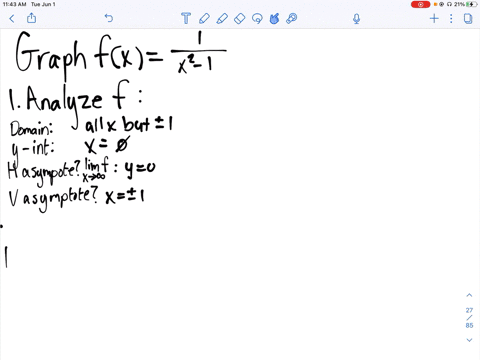 11:43 AM Tue Jun 1
21%
Graph f(x) = 1/(x²-1)
1. Analyze f :
Domain: all x but ±1
y-int: x = 0
H asympote? lim f : y=0
x→∞
V asymptote? x = ±1
27
/
85